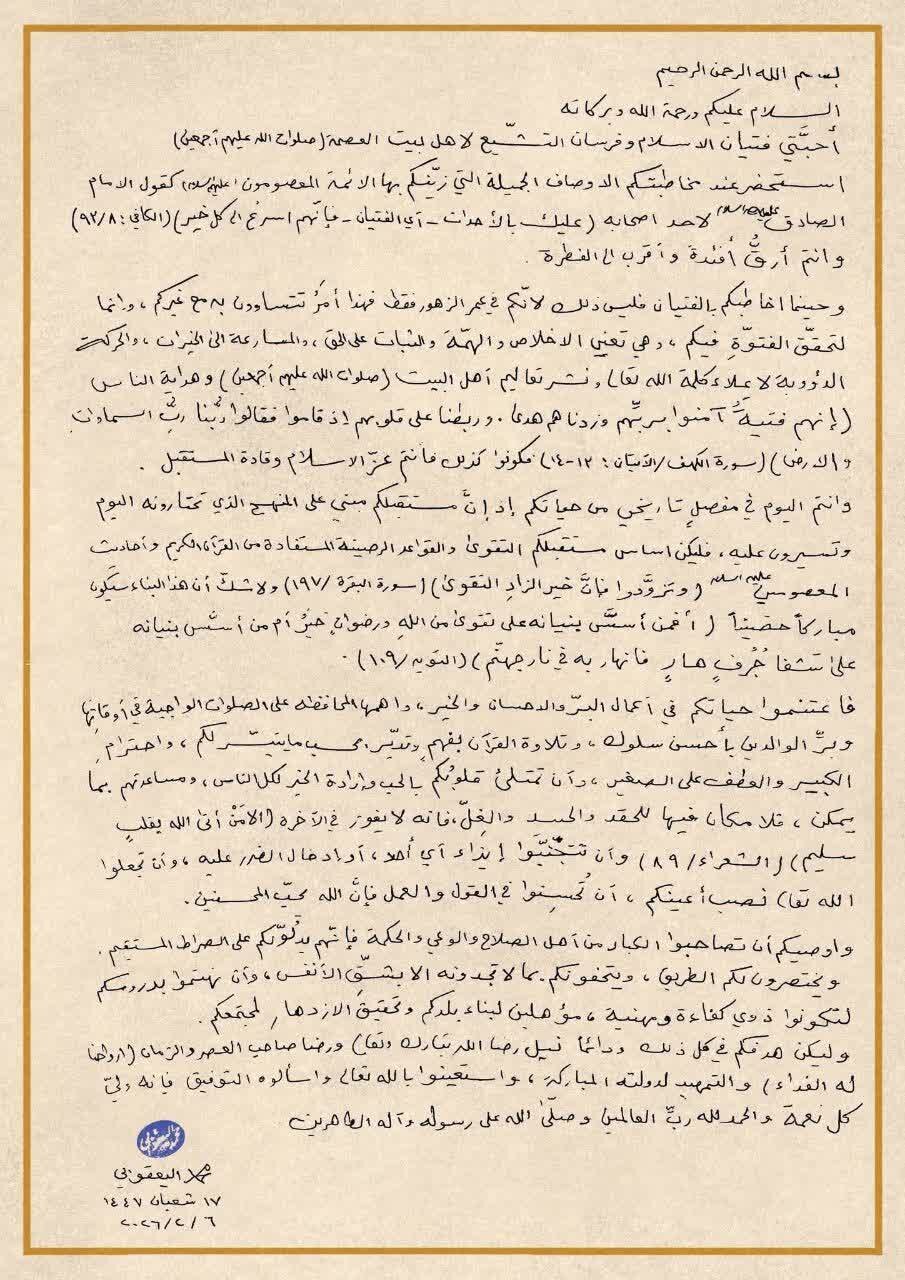 بسم الله الرحمن الرحيم
السلام عليكم ورحمة الله وبركاته
أحبَّتي فتيان الاسلام وفرسان التشيّع لاهل بيت العصمة (صلوات الله عليهم أجمعين)
استحضر عند مخاطبتكم الاوصاف الجميلة التي زيّنكم بها الائمة المعصومون (عليهم السلام) كقول الامام
الصادق عليه السلام لاحد اصحابه (عليك بالأحداث - أي الفتيان - فإنّهم اسرعُ الى كل خير) (الكافي: ٩٣/٨)
وانتم أرقُّ أفئدة وأقرب الى الفطرة.
وحينما اخاطبكم بالفتيان فليس ذلك لانّكم في عمر الزهور فقط فهذا أمرٌ تتساوون به مع غيركم، وانما
لتحقّق الفتوّةِ فيكم، وهي تعني الاخلاص والهمّة والثبات على الحق، والمسارعة الى الخيرات، والحركة
الدؤوبة لاعلاء كلمة الله تعالى ونشر تعاليم أهل البيت (صلوات الله عليهم أجمعين) وهداية الناس
(إنهم فتيةٌ آمنوا بربِّهم وزدناهم هدىً. وربطنا على قلوبهم إذ قاموا فقالوا ربُّنا ربُّ السماوات
والارض) (سورة الكهف/الآيتان: ١٣-١٤) فكونوا كذلك فأنتم عزّ الاسلام وقادة المستقبل.
وانتم اليوم في مفصلٍ تاريخي من حياتكم إذ إنَّ مستقبلكم مبني على المنهج الذي تختارونه اليوم
وتسيرون عليه، فليكن اساس مستقبلكم التقوى والقواعد الرصينة المستفادة من القرآن الكريم وأحاديث
المعصومين عليهم السلام (وتزوَّدوا فإنَّ خير الزادِ التقوى) (سورة البقرة/١٩٧) ولا شكّ أن هذا البناء سيكون
مباركاً حصيناً (أفمن أسَّس بنيانه على تقوى من اللهِ ورضوانٍ خيرٌ أم من أسّس بنيانه
على شفا جُرُفٍ هارٍ فانهار به في نار جهنّم) (التوبة/١٠٩).
فاغتنموا حياتكم في أعمال البرّ والاحسان والخير، واهمها المحافظة على الصلوات الواجبة في أوقاتها
وبرِّ الوالدين بأحسن سلوك، وتلاوة القرآن بفهمٍ وتدبّر بحسب ما يتيسّر لكم، واحترامِ
الكبير والعطف على الصغير، وأن تمتلئ قلوبُكم بالحب وإرادة الخير لكل الناس، ومساعدتهم بما
يمكن، فلا مكان فيها للحقد والحسد والغِلّ، فانه لا يفوز في الآخرة (الا مَنْ أتى الله بقلبٍ
سليم) (الشعراء/٨٩) وأن تتجنّبوا إيذاء أي أحد، أو ادخال الضرر عليه، وأن تجعلوا
الله تعالى نصب أعينكم، أن تُحسِنوا في القول والعمل فإنَّ الله يحبّ المحسنين.
واوصيكم أن تصاحبوا الكبار من أهل الصلاح والوعي والحكمة فإنّهم يدلّونكم على الصراط المستقيم.
ويختصرون لكم الطريق، ويتحفونكم بما لا تجدونه الا بشقِّ الأنفس، وأن تهتموا بدروسكم
لتكونوا ذوي كفاءة ومهنية، مؤهلين لبناء بلدكم وتحقيق الازدهارِ لمجتمعكم.
وليكن هدفكم في كل ذلك ودائماً نيل رضا الله تبارك وتعالى ورضا صاحب العصر والزمان (ارواحنا
له الفداء) والتمهيد لدولته المباركة، واستعينوا بالله تعالى واسألوه التوفيق فإنه وليّ
كل نعمة والحمد لله ربِّ العالمين وصلّى الله على رسوله وآله الطاهرين
محمد اليعقوبي
محمد اليعقوبي
١٧ شعبان ١٤٤٧
٢٠٢٦/٢/٦